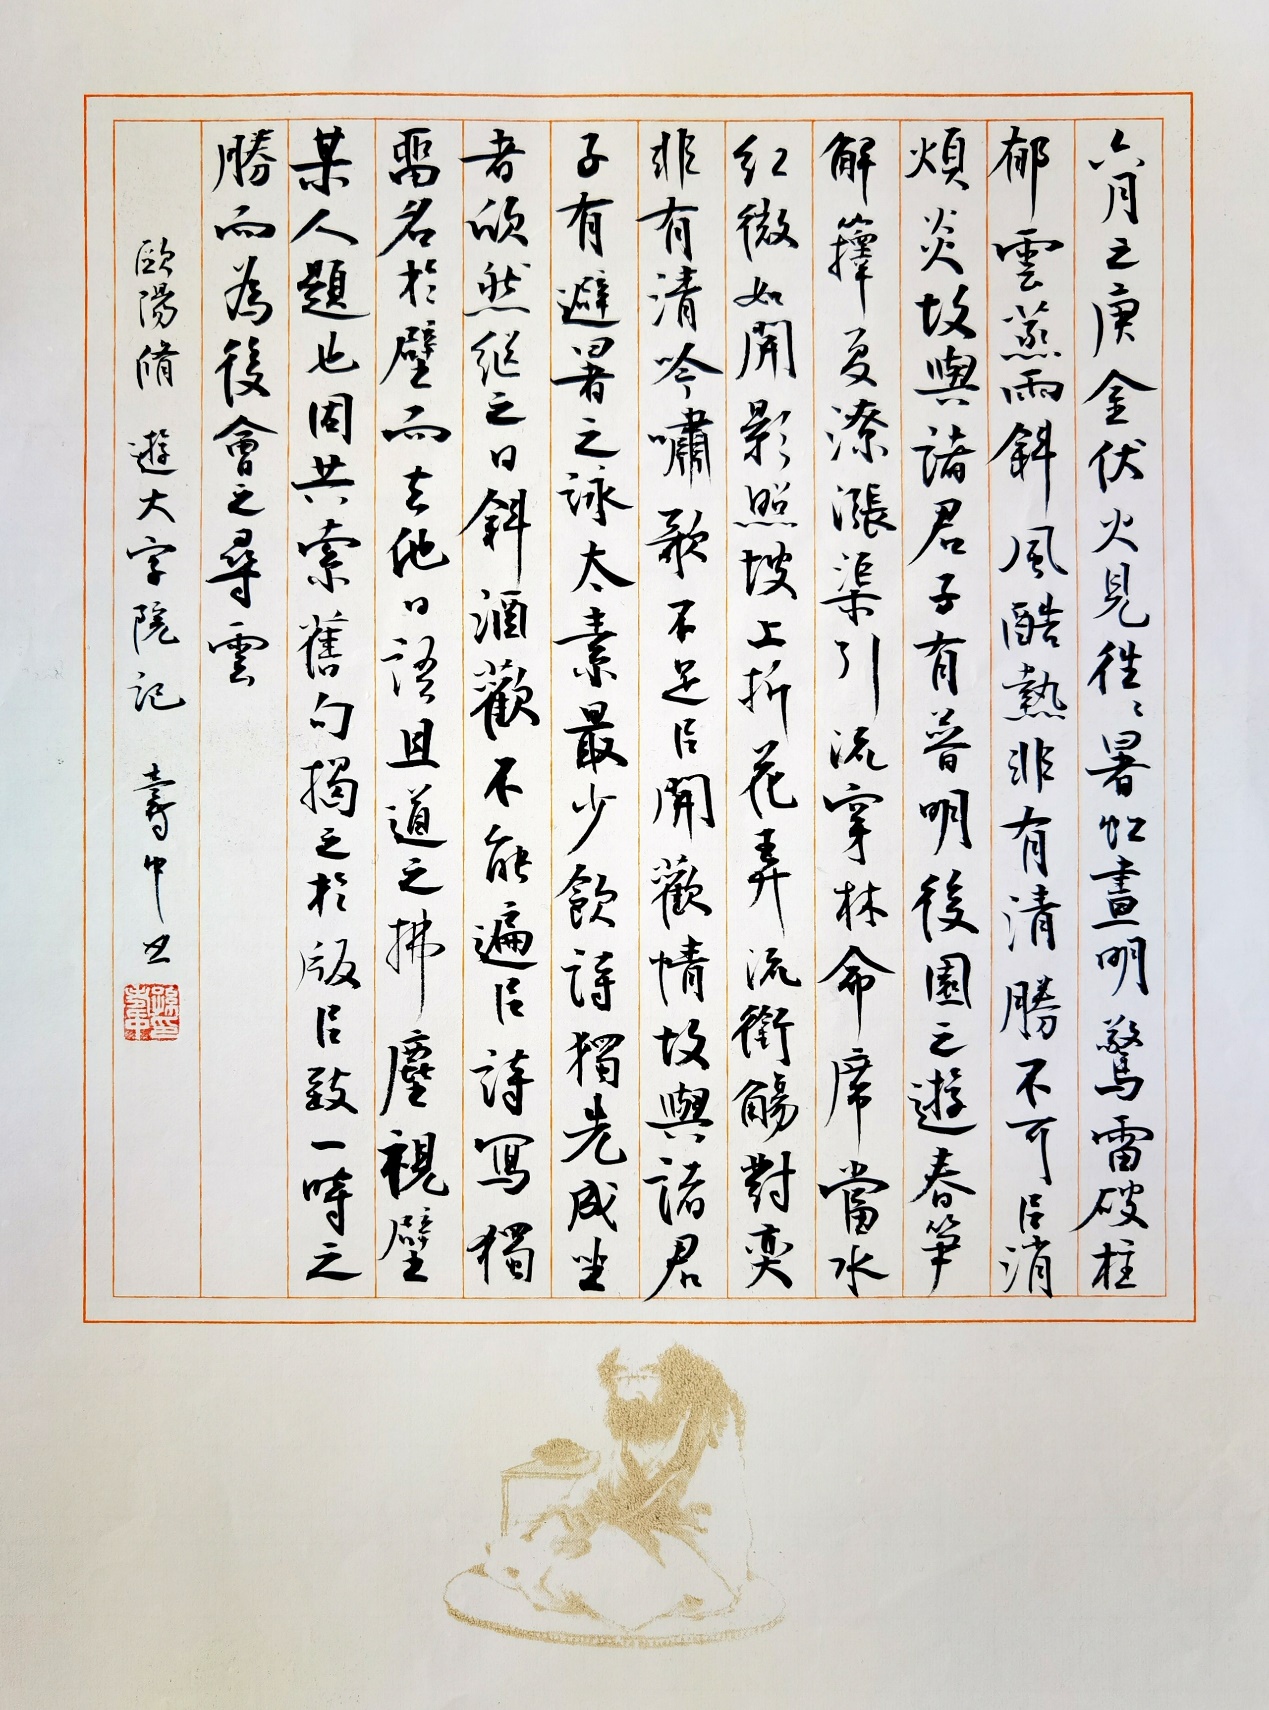 六月之庚金伏火見往〻暑虹晝明驚雷破柱
郁雲蒸雨斜風酷熱非有清勝不可㠯消
煩炎故與諸君子有普明後園之遊春笋
解籜夏潦漲渠引流穿林命席當水
紅薇始開影照坡上折花弄流銜觴對奕
非有清吟嘯歌不足㠯開歡情故與諸君
子有避暑之詠太素最少飲詩獨先成坐
者欣然繼之日斜酒歡不能遍㠯詩寫獨
留名於壁而去他日語且道之拂塵視壁
某人題也因共索舊句揭之於版㠯致一時之
勝而為後會之尋雲
歐陽脩 遊大字院記 壽中书